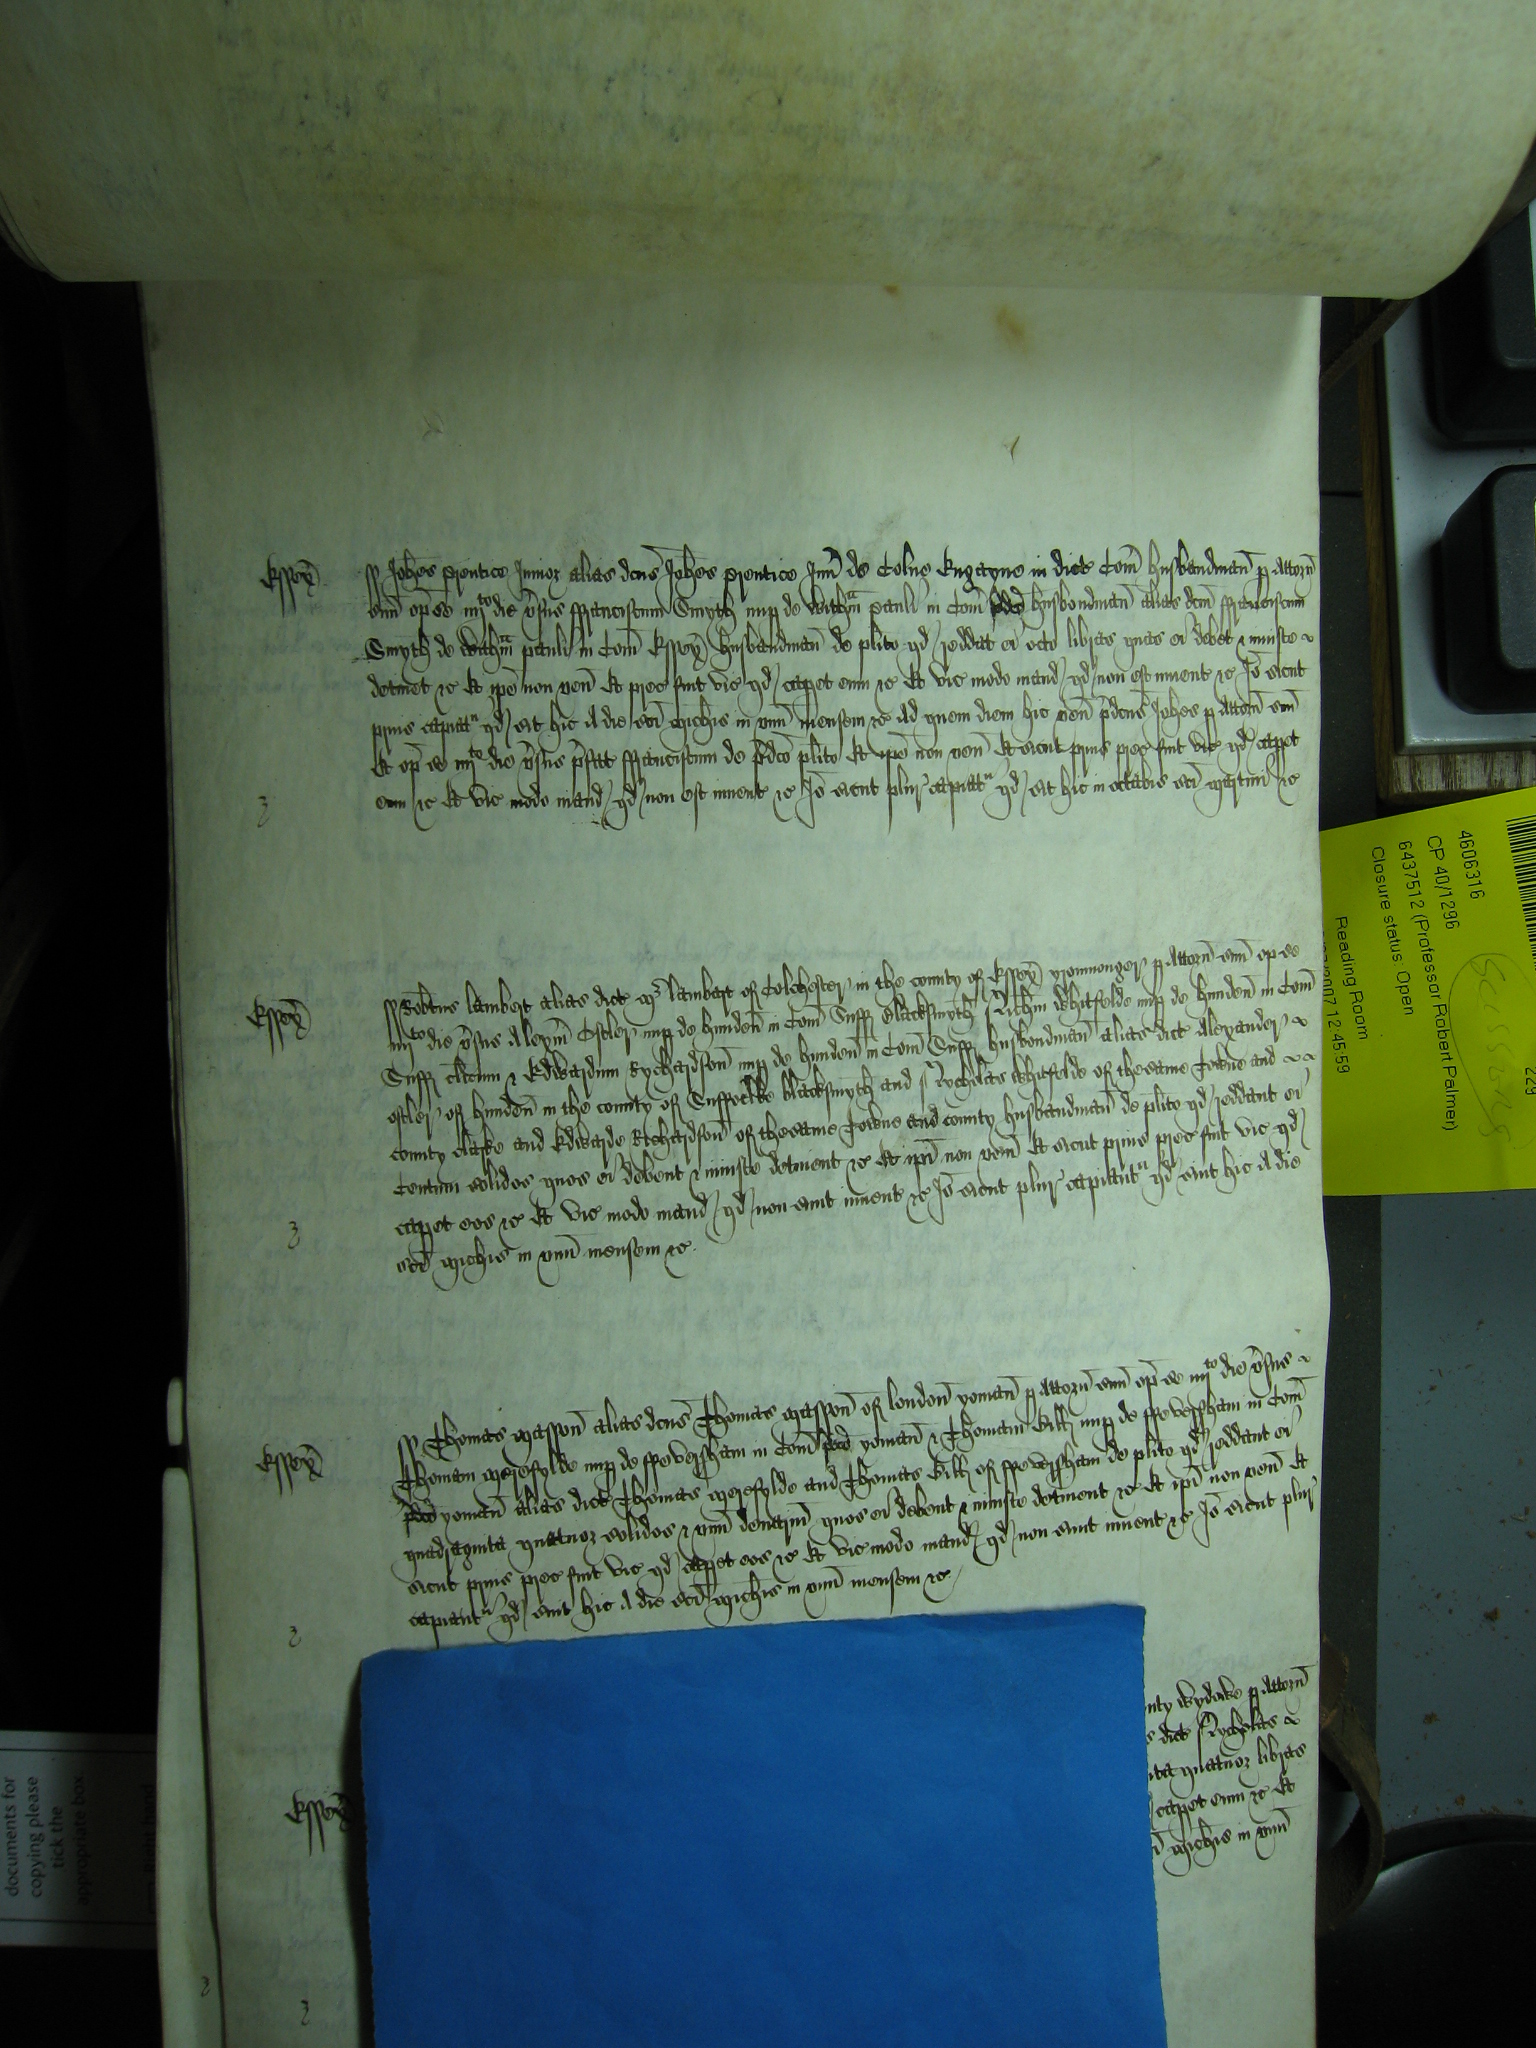 Essex
ss Johes Prentice Junior alias dcus Johes Prentice Junr de Colne Engayne in dict Com husbandman p Attorn
suu op se iiijto die vsus ffranciscum Smyth nup de Withm Pauli in Com pdco husbondman alias dcm ffranciscum
Smyth de Withm Pauli in Com Essex husbandman de plito qd reddat ei octo libras quas ei debet & iniuste
detinet &c Et ipe non ven Et prec fuit vic qd capet eum &c Et vic modo mand qd non est invent &c Io sicut
prius capiat qd sit hic A die sci Michis in unu mensem &c Ad quem diem hic ven pdcus Johes p Attorn suu
Et op se iiijto die vsus pfat ffranciscum de pdco plito Et ipe non ven Et sicut prius prec fuit vic qd capet
eum &c Et vic modo mand qd non est invent &c Io sicut plur capiat qd sit hic in octabis sci Martini &c
Essex
ss Robtus Lambert alias dict Lambert of Colchester in the county of Essex yronmonger p Attorn suu op se
iiijto die vsus Alexm Ostler nup de hunden in Com Suff Blacksmyth Nichm Whitfelde nup de hunden in Com
Suff clicum & Edwardum Rychardson nup de hunden in Com Suff husbondman alias dict Alexander
ostler of hunden in the county of Suffolke blacksmyth and Nycholas Whitfelde of thesame Towne and
county clarke and Edwarde Richardson of thesame Towne and county husbandman de plito qd reddant ei
Centum solidos quos ei debent & iniuste detinent &c Et ipi non ven Et sicut prius prec fuit vic qd
capet eos &c Et vic modo mand qd non sunt invent &c Io sicut plur capiant qd sint hic A die
sci Michis in unu mensem &c
Essex
ss Thomas Masson alias dcus Thomas Masson of london yoman p Attorn suu op se iiijto die vsus
Thomam Merefylde nup de ffeversham in Com pdco yoman & Thomam Bill nup de ffeversham in Com
pdco yoman alias dict Thomas Merefylde and Thomas Bill of ffeversham de plito qd reddant ei
quadraginta quatuor solidos & unu denariu quos ei debent & iniuste detinent &c Et ipi non ven Et
sicut prius prec fuit vic qd capet eos &c Et vic modo mand qd non sunt invent &c Io sicut plur
capiant qd sint hic A die sci Michis in unu mensem &c
Essex
wydowe p Attorn
dict Nycholas
quatuor libras
capet eum &c Et
Michis in unu
4606316
CP 40/1296
6437512 (Professor Robert Palmer)
Closure status Open
Reading Room
2007 12:45:59
229
documents for
copying please
tick the
appropriate box